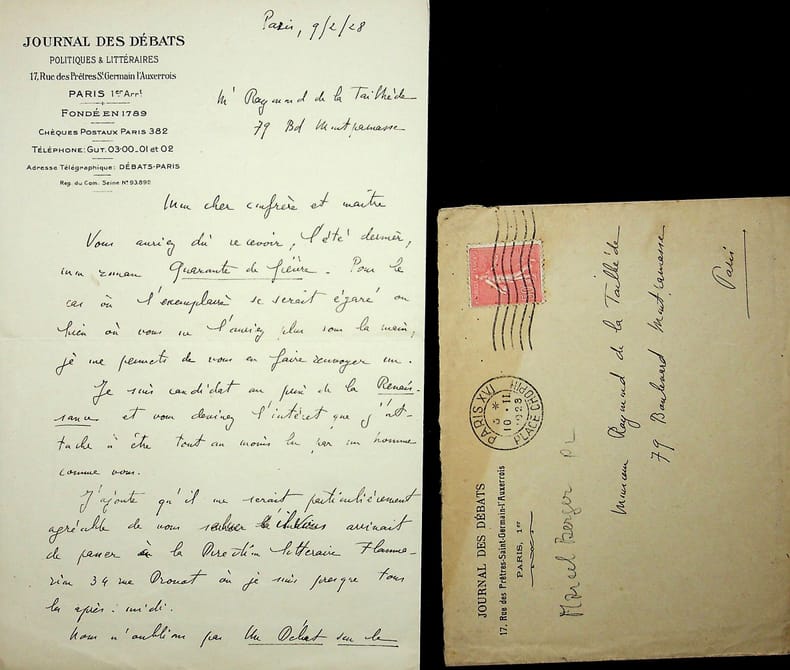 Paris, 9/2/28
JOURNAL DES DÉBATS
POLITIQUES & LITTÉRAIRES
17, Rue des Prêtres St Germain l'Auxerrois
PARIS 1er Arrt
FONDÉ EN 1789
CHÈQUES POSTAUX PARIS 382
TÉLÉPHONE: GUT. 03·00_01 et 02
Adresse Télégraphique: DÉBATS-PARIS
Reg. du Com. Seine No 93.892
Mr Raymond de la Tailhède
79 Bd Montparnasse
Mon cher confrère et maître
Vous auriez dû recevoir, l'été dernier,
mon roman Quarante de fièvre. Pour le
cas où l'exemplaire se serait égaré ou
bien où vous ne l'auriez plus sous la main,
je me permets de vous en faire renvoyer un.
Je suis candidat au prix de la Renais-
sance et vous devinez l'intérêt que j'at-
tache à être tout au moins lu par un homme
comme vous.
J'ajoute qu'il me serait particulièrement
agréable de vous saluer s'il vous arrivait
de passer à la Direction littéraire Flamma-
rion 34 rue Drouot où je suis presque tous
les après-midi.
Nous n'oublions pas Un Débat sur le
PARIS XVI
PLACE CHOPIN
3 *
10 · II
1928
Monsieur Raymond de la Tailhède
79 Boulevard Montparnasse
Paris
JOURNAL DES DÉBATS
17, Rue des Prêtres-Saint-Germain-l'Auxerrois
PARIS, 1er
Marcel Berger